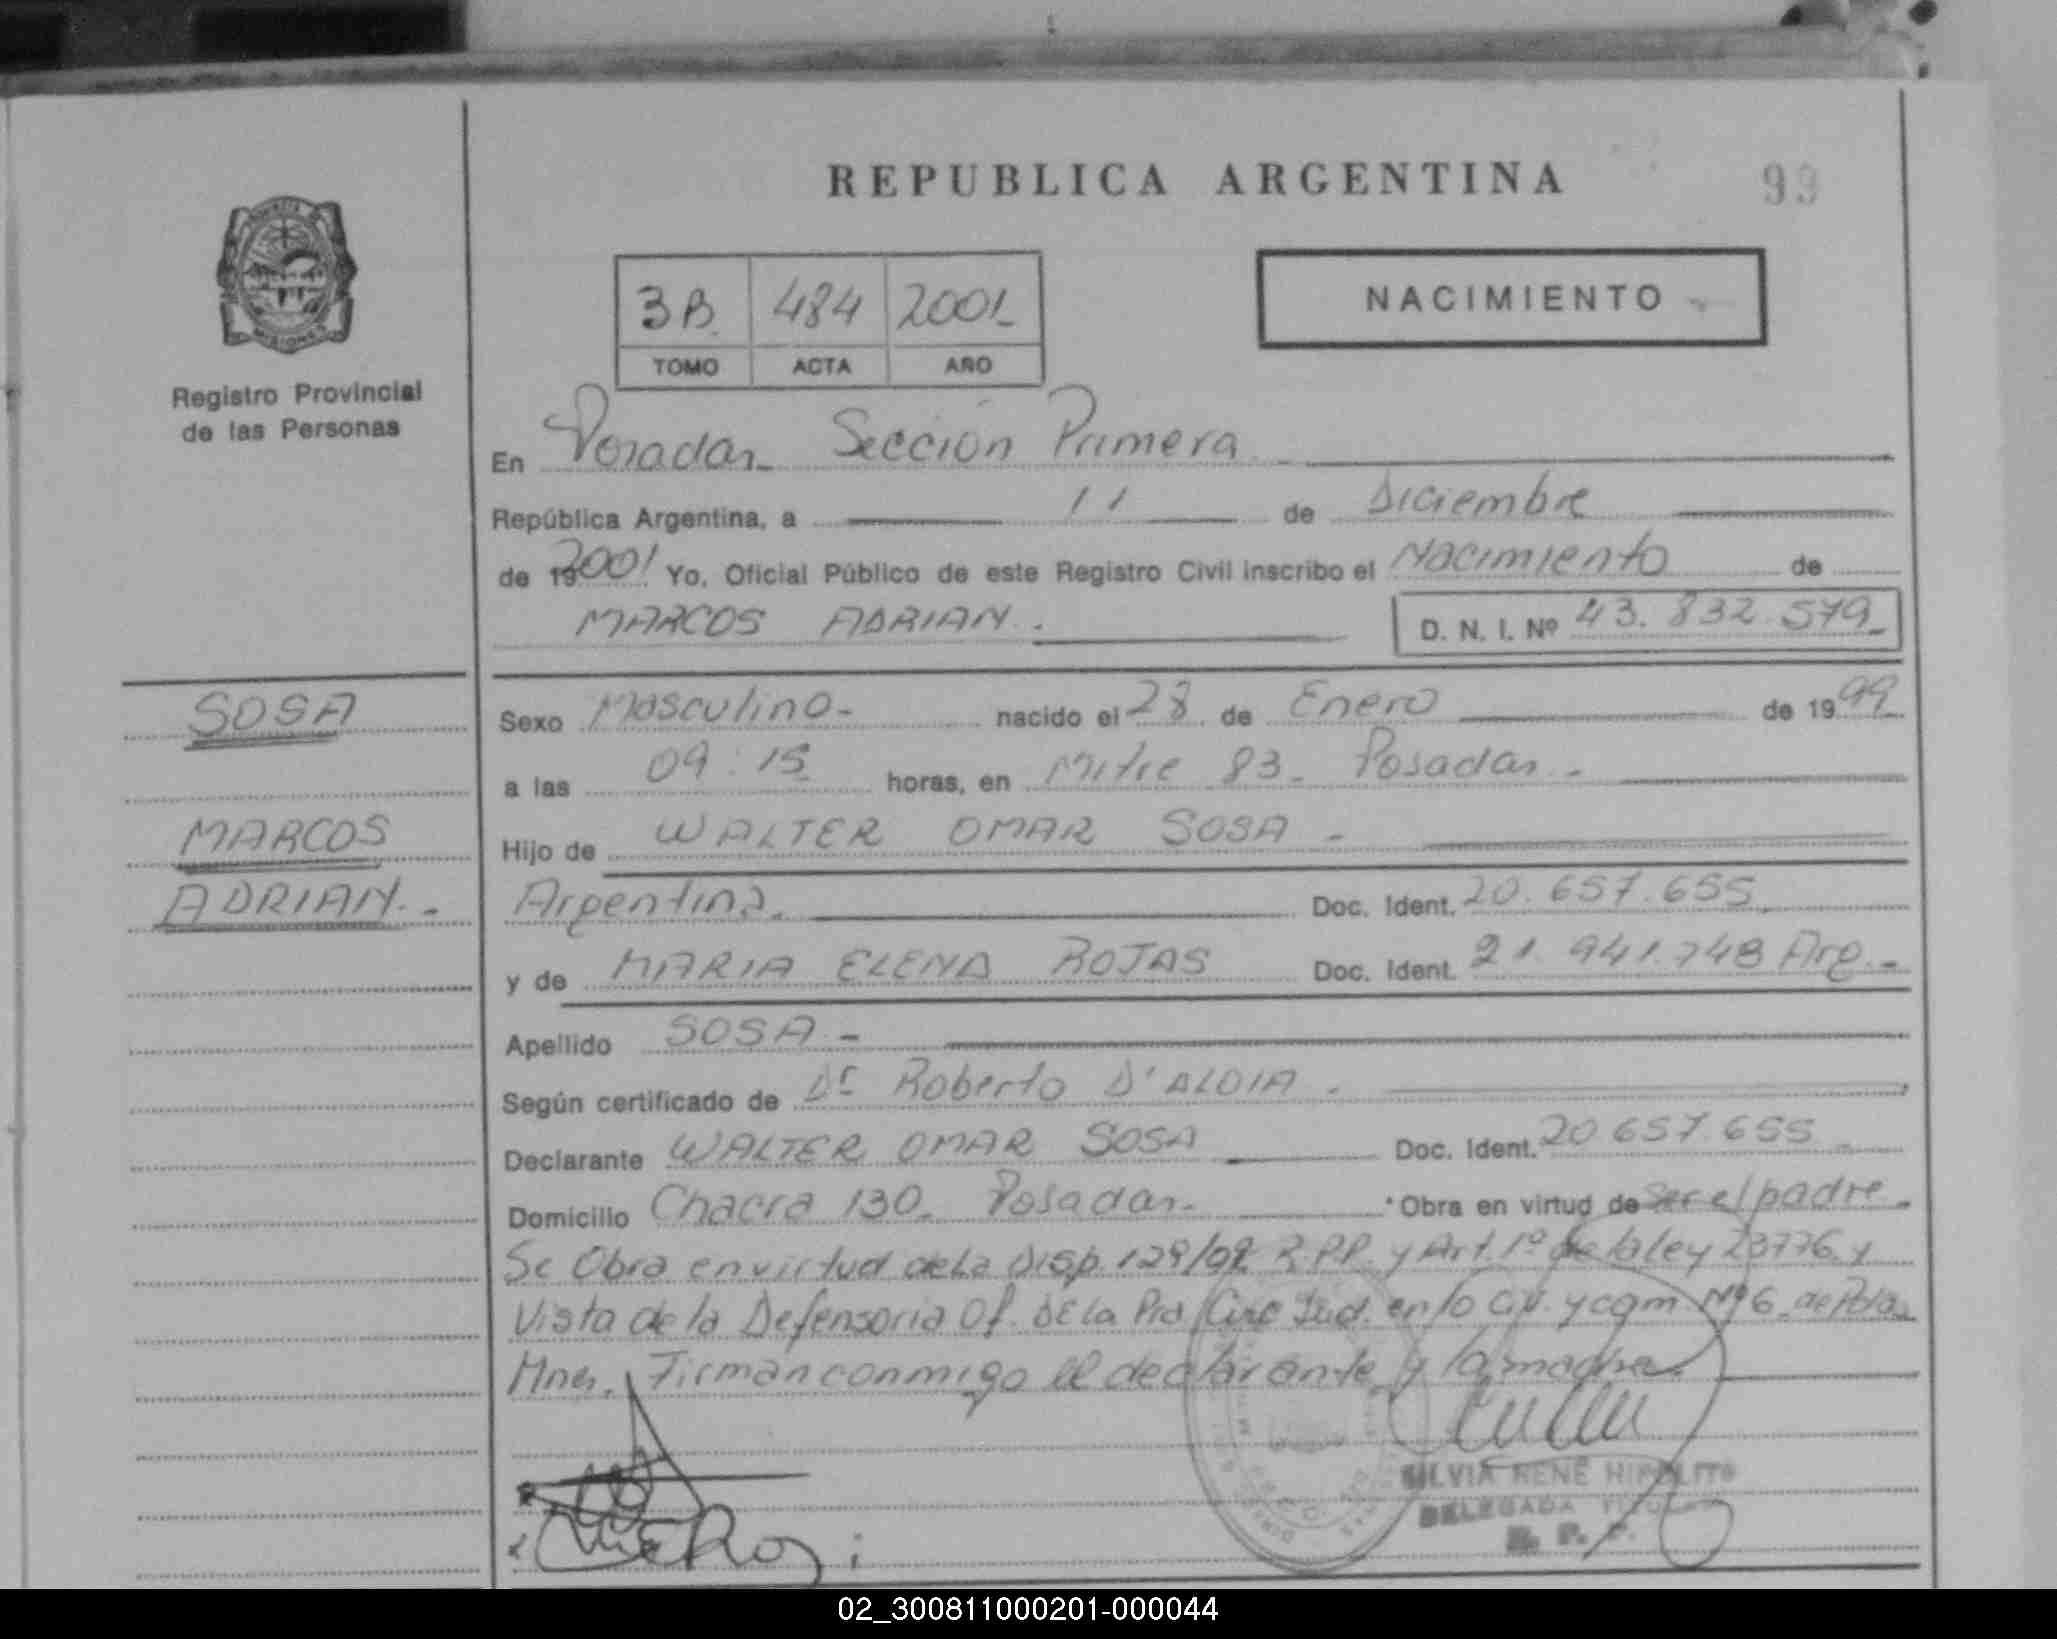 REPUBLICA ARGENTINA
99
MISIONES
Registro Provincial
de las Personas
3B 484 2001
TOMO ACTA AÑO
NACIMIENTO
En Posadas Sección Primera
República Argentina, a 11 de Diciembre
de 192001 Yo, Oficial Público de este Registro Civil inscribo el Nacimiento de
MARCOS ADRIAN. D. N. I. Nº 43.832.579
SOSA
MARCOS
ADRIAN.-
Sexo Masculino- nacido el 28 de Enero de 1999
a las 09:15 horas, en Mitre 83- Posadas-
Hijo de WALTER OMAR SOSA-
Argentina. Doc. Ident. 20.657.655
y de MARIA ELENA ROJAS Doc. Ident. 21.941.748 Arg.-
Apellido SOSA-
Según certificado de Dr Roberto D'ALOIA.
Declarante WALTER OMAR SOSA Doc. Ident. 20 657.655
Domicilio Chacra 130- Posadas- Obra en virtud de ser el padre.
Se Obra en virtud de la Disp. 129/92 R.P.P. y Art. 1º de la ley 23776 y
Vista de la Defensoria Of. DE la Pra Circ Jud. en lo Civ. y com. Nº 6 de Pdas
Mnes. Firman conmigo el declarante y la madre.
SILVIA RENE HIPOLITO
DELEGADA TITULAR
R. P. P.
02_300811000201-000044